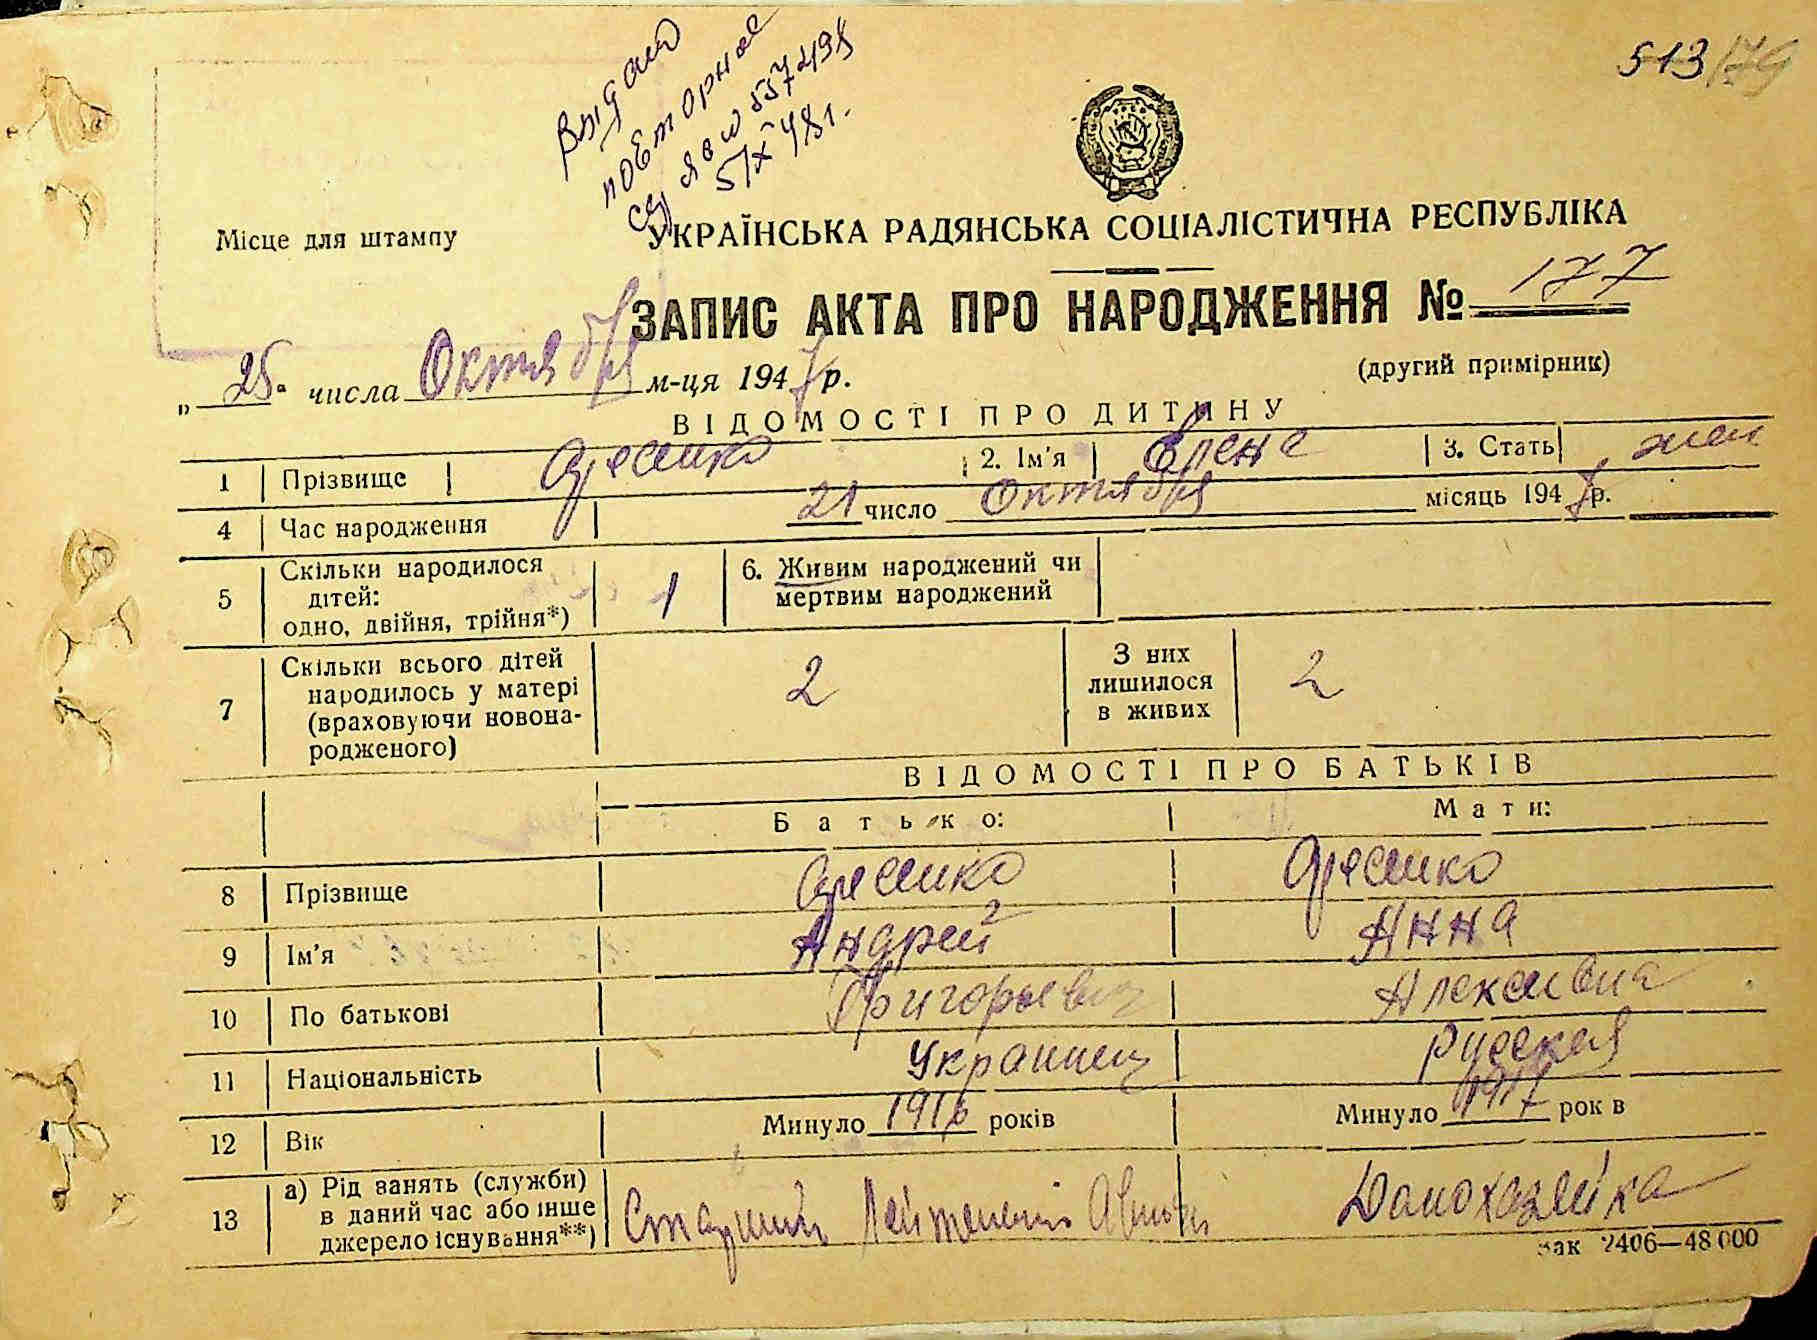 513/79
Выдано
повторное
557498
5/X 48г.
Місце для штампу
УКРАЇНСЬКА РАДЯНСЬКА СОЦІАЛІСТИЧНА РЕСПУБЛІКА
ЗАПИС АКТА ПРО НАРОДЖЕННЯ № 177
(другий примірник)
„ 25" числа Октября м-ця 1947 р.
ВІДОМОСТІ ПРО ДИТИНУ
1 Прізвище 2. Ім'я Елена 3. Стать жен
4 Час народження 21 число Октября місяць 1947 р.
5 Скільки народилося дітей: одно, двійня, трійня*) 1 6. Живим народжений чи мертвим народжений
7 Скільки всього дітей народилось у матері (враховуючи новонародженого) 2 З них лишилося в живих 2
ВІДОМОСТІ ПРО БАТЬКІВ
Батько: Мати:
8 Прізвище
9 Ім'я Андрей Анна
10 По батькові Григорьевич Алексеевна
11 Національність Украинец Русская
12 Вік Минуло 1916 років Минуло 1917 рок в
13 а) Рід занять (служби) в даний час або інше джерело існування**) Старший Лейтенант Домохозяйка
Зак 2406—48 000